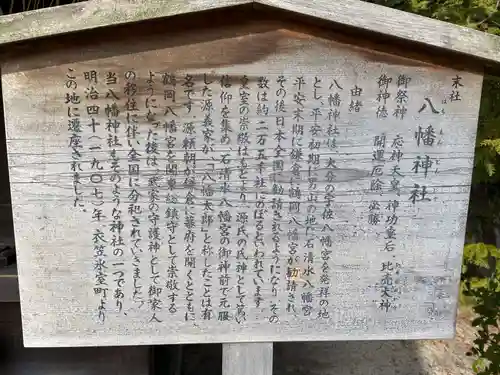 末社
八幡神社
御祭神　応神天皇、神功皇后、比売大神
御神徳　開運厄除、必勝
由緒
八幡神社は、大分の宇佐八幡宮を発祥の地
とし、平安初期に男山の地に石清水八幡宮、
平安末期に鎌倉に鶴岡八幡宮が勧請され、
その後日本全国に勧請されるようになり、その
数は約二万五千社にのぼるといわれています。
皇室の崇敬はもとより、源氏の氏神としても高い
信仰を集め、石清水八幡宮の御神前で元服
した源義家が「八幡太郎」と称したことは有
名です。源頼朝が鎌倉に幕府を開くとともに
鶴岡八幡宮を関東総鎮守として崇敬する
ようになった後は、武家の守護神として御家人
の移住に伴い全国に分祀されていきました。
当八幡神社もそのような神社の一つであり、
明治四十(一九〇七)年、衣笠氷室町より
この地に遷座されました。